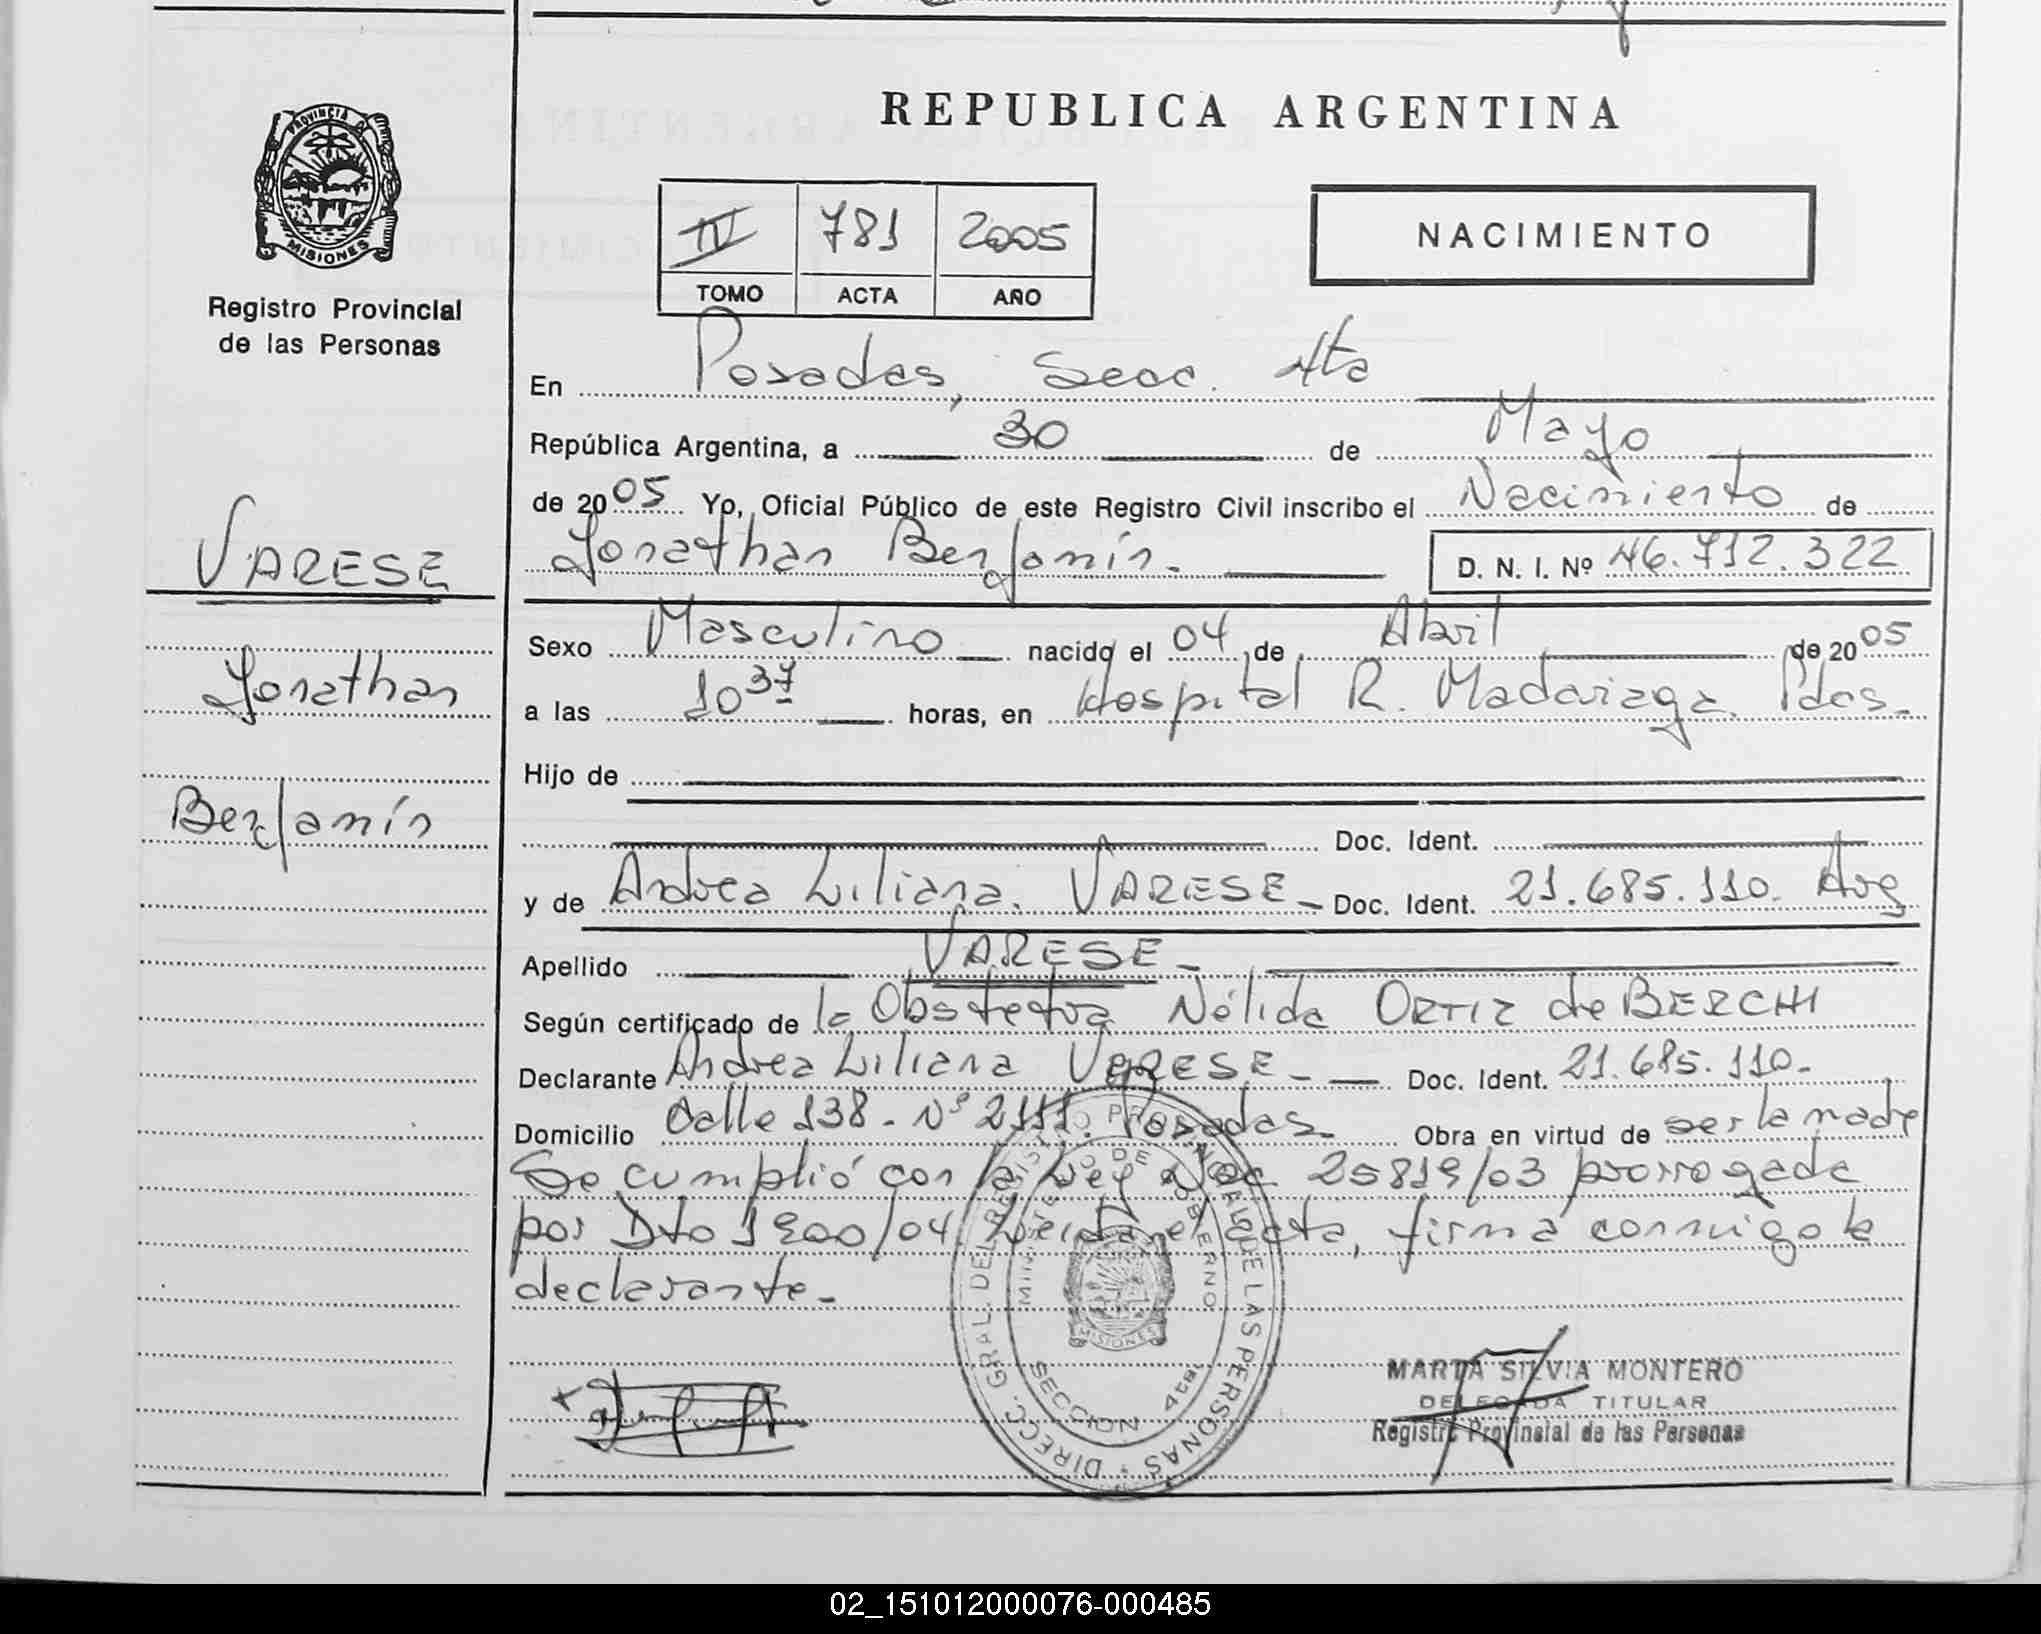 PROVINCIA DE
MISIONES
Registro Provincial
de las Personas
VARESE
Jonathan
Benjamín
REPUBLICA ARGENTINA
IV 781 2005
TOMO ACTA AÑO
NACIMIENTO
En Posadas, Secc. 4ta
República Argentina, a 30 de Mayo
de 2005 Yo, Oficial Público de este Registro Civil inscribo el Nacimiento de
Jonathan Benjamín. D. N. I. Nº 46.712.322
Sexo Masculino nacido el 04 de Abril de 2005
a las 10 37 horas, en Hospital R. Madariaga. Pdas.
Hijo de
Doc. Ident.
y de Andrea Liliana. VARESE Doc. Ident. 21.685.110. Arg
Apellido VARESE
Según certificado de la Obstetra Nélida ORTIZ de BERCHI
Declarante Andrea Liliana VARESE Doc. Ident. 21.685.110.
Domicilio Calle 138 - Nº 2111. Posadas Obra en virtud de ser la madre
Se cumplió con la Ley Nac 25819/03 prorrogada
por Dto 1900/04. Leída el acta, firma conmigo la
declarante.
DIRECC. GRAL. DEL REGISTRO PROVINCIAL DE LAS PERSONAS
MINISTERIO DE GOBIERNO
MISIONES
SECCION 4ta.
MARTA SILVIA MONTERO
DELEGADA TITULAR
Registro Provincial de las Personas
02_151012000076-000485